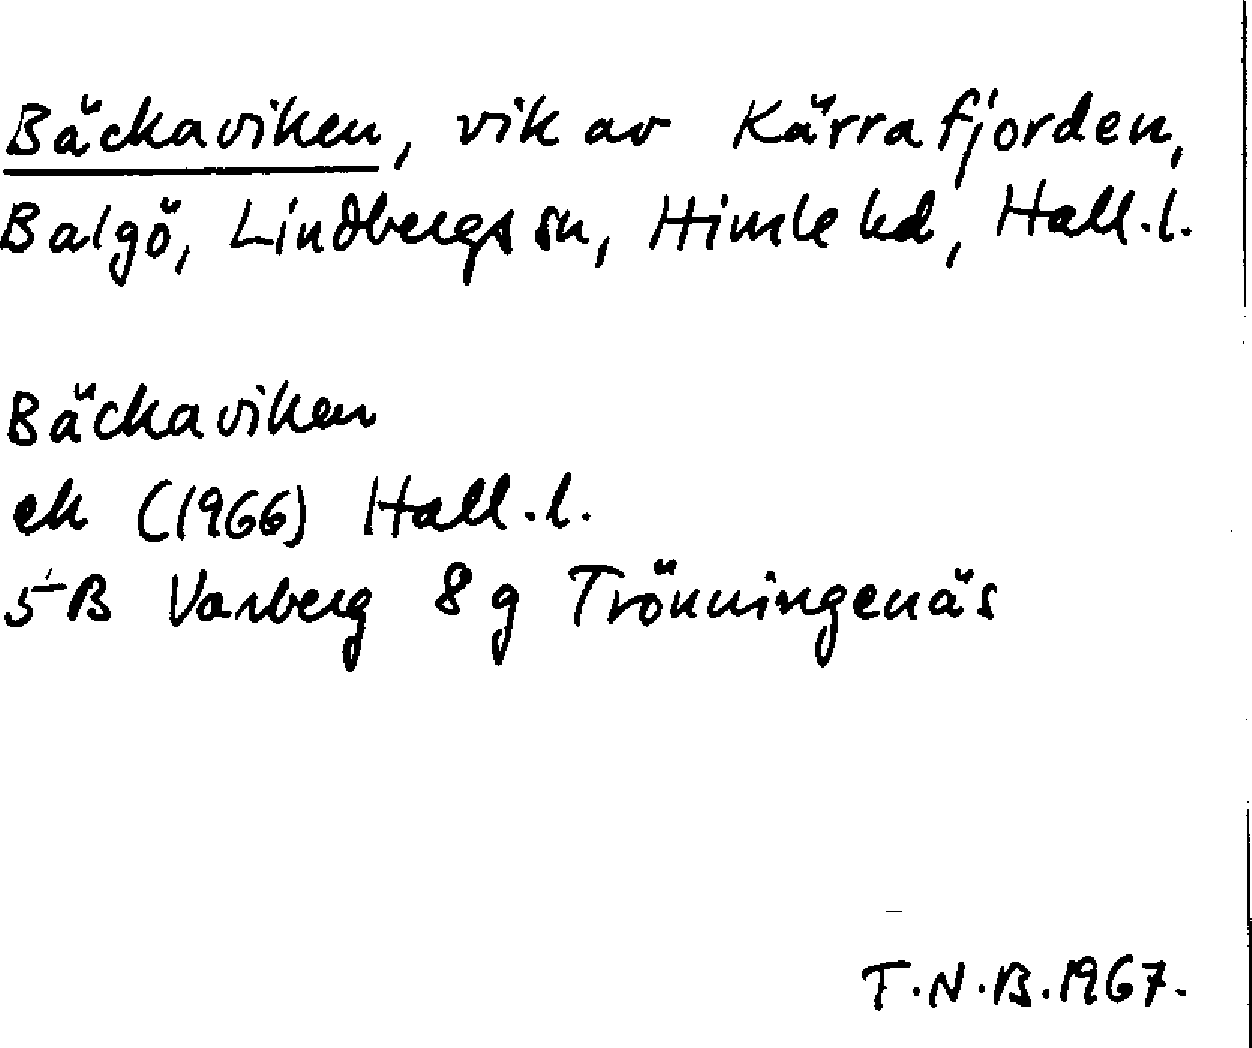 Bäckaviken, vik av Kärrafjorden,
Balgö, Lindbergs sn, Himle hd, Hall.l.
Bäckaviken
ek (1966) Hall.l.
5B Varberg 8g Trönningenäs
T.N.B.1967.